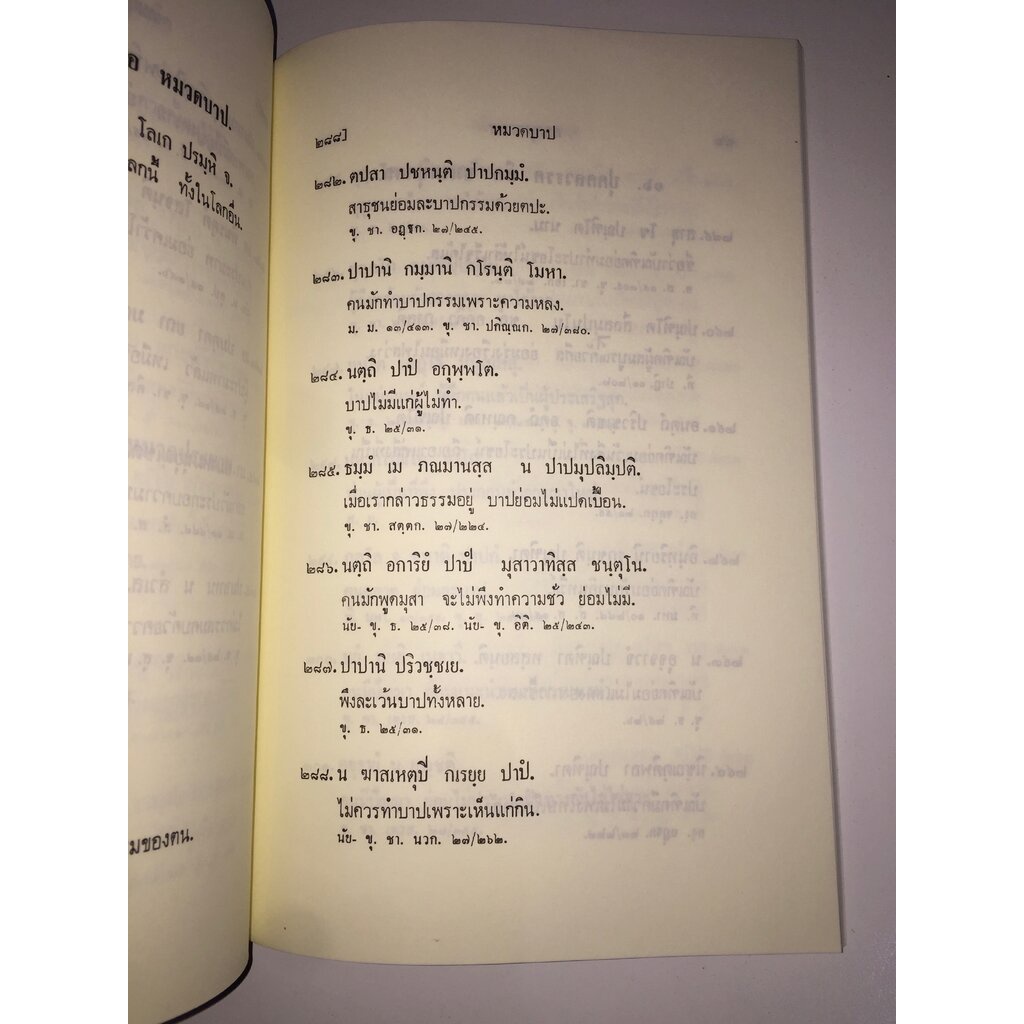 หมวดบาป.
โลเก ปรมฺหิ จ.
ทั้งในโลกอื่น.
มของตน.
๒๘๘] หมวดบาป
๒๘๒. ตปสา ปชหนฺติ ปาปกมฺมํ.
สาธุชนย่อมละบาปกรรมด้วยตปะ.
ขุ. ชา. อฏฺฐก. ๒๗/๒๔๕.
๒๘๓. ปาปานิ กมฺมานิ กโรนฺติ โมหา.
คนมักทำบาปกรรมเพราะความหลง.
ม. ม. ๑๓/๔๑๓. ขุ. ชา. ปกิณฺณก. ๒๗/๓๘๐.
๒๘๔. นตฺถิ ปาปํ อกุพฺพโต.
บาปไม่มีแก่ผู้ไม่ทำ.
ขุ. ธ. ๒๕/๓๑.
๒๘๕. ธมฺมํ เม ภณมานสฺส น ปาปมุปลิมฺปติ.
เมื่อเรากล่าวธรรมอยู่ บาปย่อมไม่แปดเปื้อน.
ขุ. ชา. สตฺตก. ๒๗/๒๒๔.
๒๘๖. นตฺถิ อการิยํ ปาปํ มุสาวาทิสฺส ชนฺตุโน.
คนมักพูดมุสา จะไม่พึงทำความชั่ว ย่อมไม่มี.
นัย- ขุ. ธ. ๒๕/๓๘. นัย- ขุ. อิติ. ๒๕/๒๔๓.
๒๘๗. ปาปานิ ปริวชฺชเย.
พึงละเว้นบาปทั้งหลาย.
ขุ. ธ. ๒๕/๓๑.
๒๘๘. น ฆาสเหตุปี กเรยฺย ปาปํ.
ไม่ควรทำบาปเพราะเห็นแก่กิน.
นัย- ขุ. ชา. นวก. ๒๗/๒๖๒.